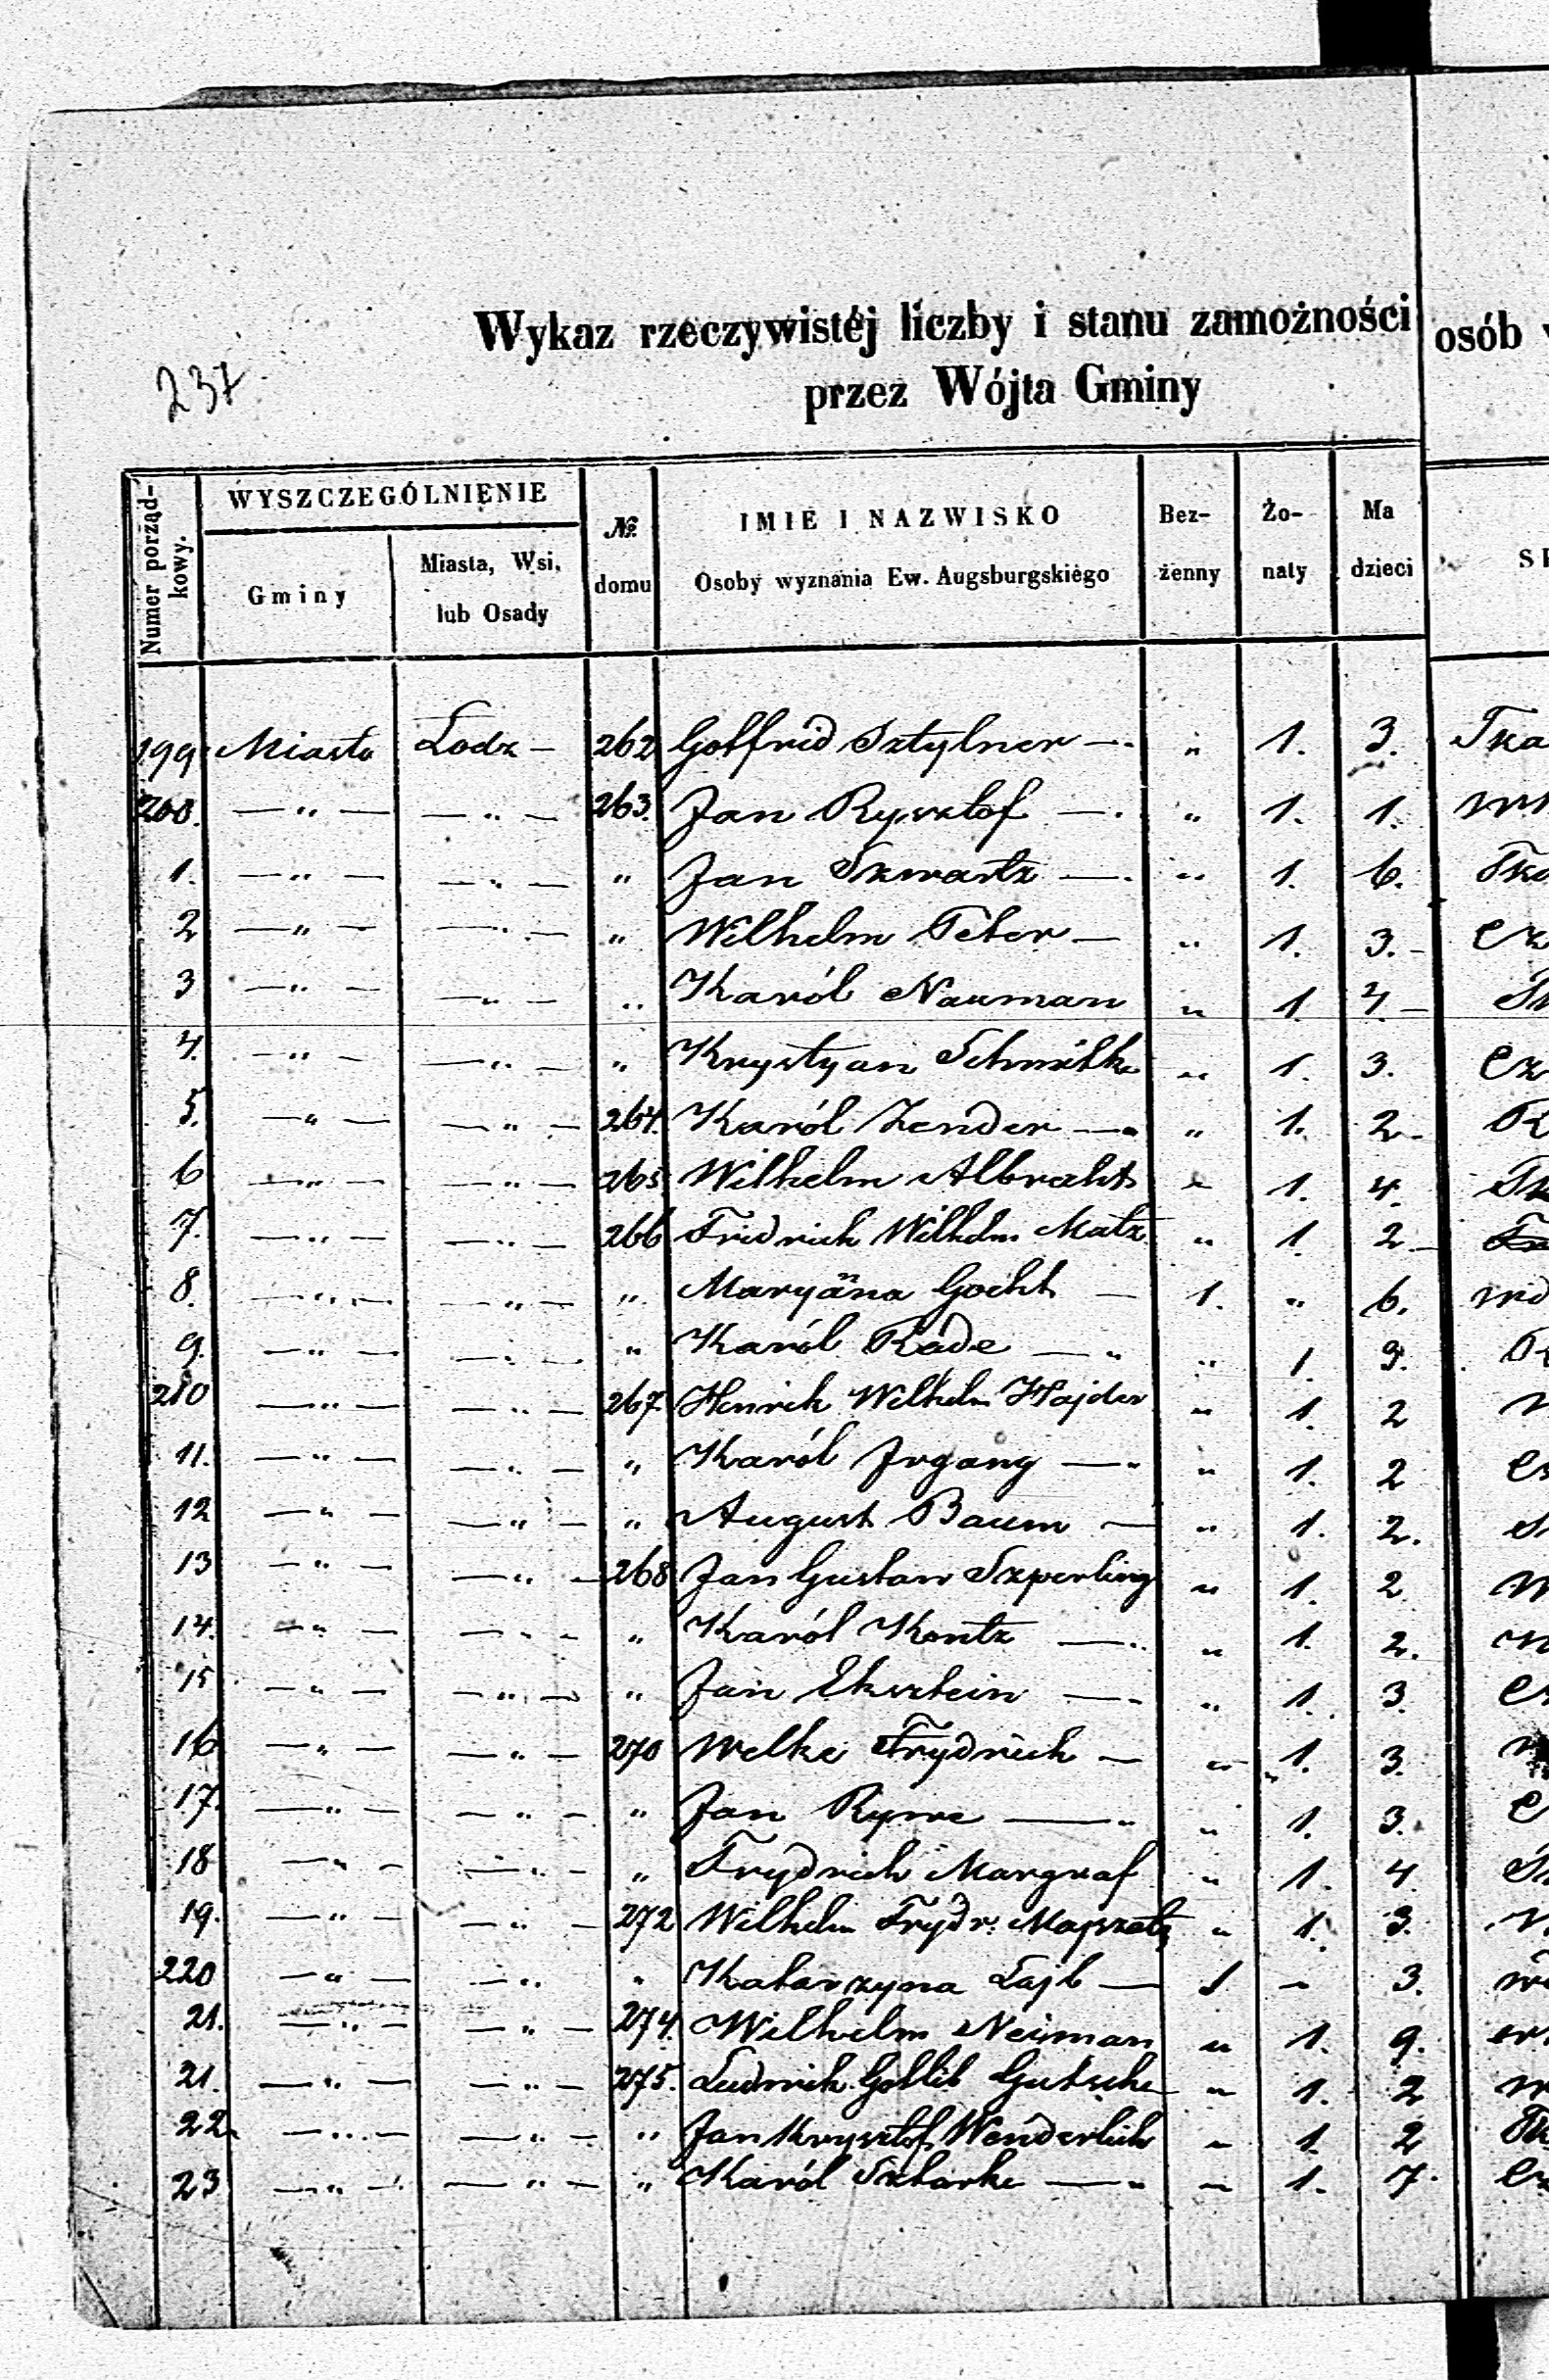 237
Wykaz rzeczywistéj liczby i stanu zamożności osób
przez Wójta Gminy
Numer porząd-kowy. WYSZCZEGÓLNIENIE № domu IMIE I NAZWISKO Bez- Żo- Ma
Gminy Miasta, Wsi, lub Osady Osoby wyznania Ew. Augsburgskiégo żenny naty dzieci
199 Miasto Łodz — 262 Gottfrid Sztylner —. „ 1. 3. Tka
200. — „ — — „ — 263. Jan Rysztof —. „ 1. 1.
1. — „ — — „ — „ Jan Szwartz —. „ 1. 6. Tka
2 — „ — — „ — „ Wilhelm Peter — „ 1. 3. —
3 — „ — — „ — „ Karól Nauman „ 1. 4. —
4. — „ — — „ — „ Krystyan Schmilke „ 1. 3.
5. — „ — — „ — 264. Karól Zender — „ 1. 2 —
6 — „ — — „ — 265. Wilhelm Albracht „ 1. 4.
7. — „ — — „ — 266 Fridrich Wilhelm Matz „ 1. 2 —
8. — „ — — „ — „ Maryäna Gocht — 1. „ 6.
9. — „ — — „ — „ Karól Rade — „ „ 1. 3.
210 — „ — — „ — 267 Henrik Wilhelm Hajder „ 1. 2
11. — „ — — „ — „ Karól Irgang — „ „ 1. 2
12 — „ — — „ — „ August Baum — „ 1. 2.
13 — „ — — „ — 268 Jan Gustaw Szperling „ 1. 2
14. — „ — — „ — „ Karól Kontz — „ 1. 2.
15 — „ — — „ — „ Jan Eksztein — „ 1. 3.
16 — „ — — „ — 270 Welke Frydrich — „ 1. 3.
17. — „ — — „ — „ Jan — „ „ 1. 3.
18 — „ — — „ — „ Frydrich Margraf „ 1. 4.
19. — „ — — „ — 272 Wilhelm Frydr. „ 1. 3.
220 — „ — — „ „ Katarzyna Lajb — 1 „ 3.
21. — „ — — „ — 274. Wilhelm Neiman „ 1. 9.
21. — „ — — „ — 275. Ludwik Gotlib Gutsche „ 1. 2
22. — „ — — „ — „ Jan Krysztof Wenderlich „ 1. 2
23 — „ — — „ — „ Karól Sztarke — „ „ 1. 7.